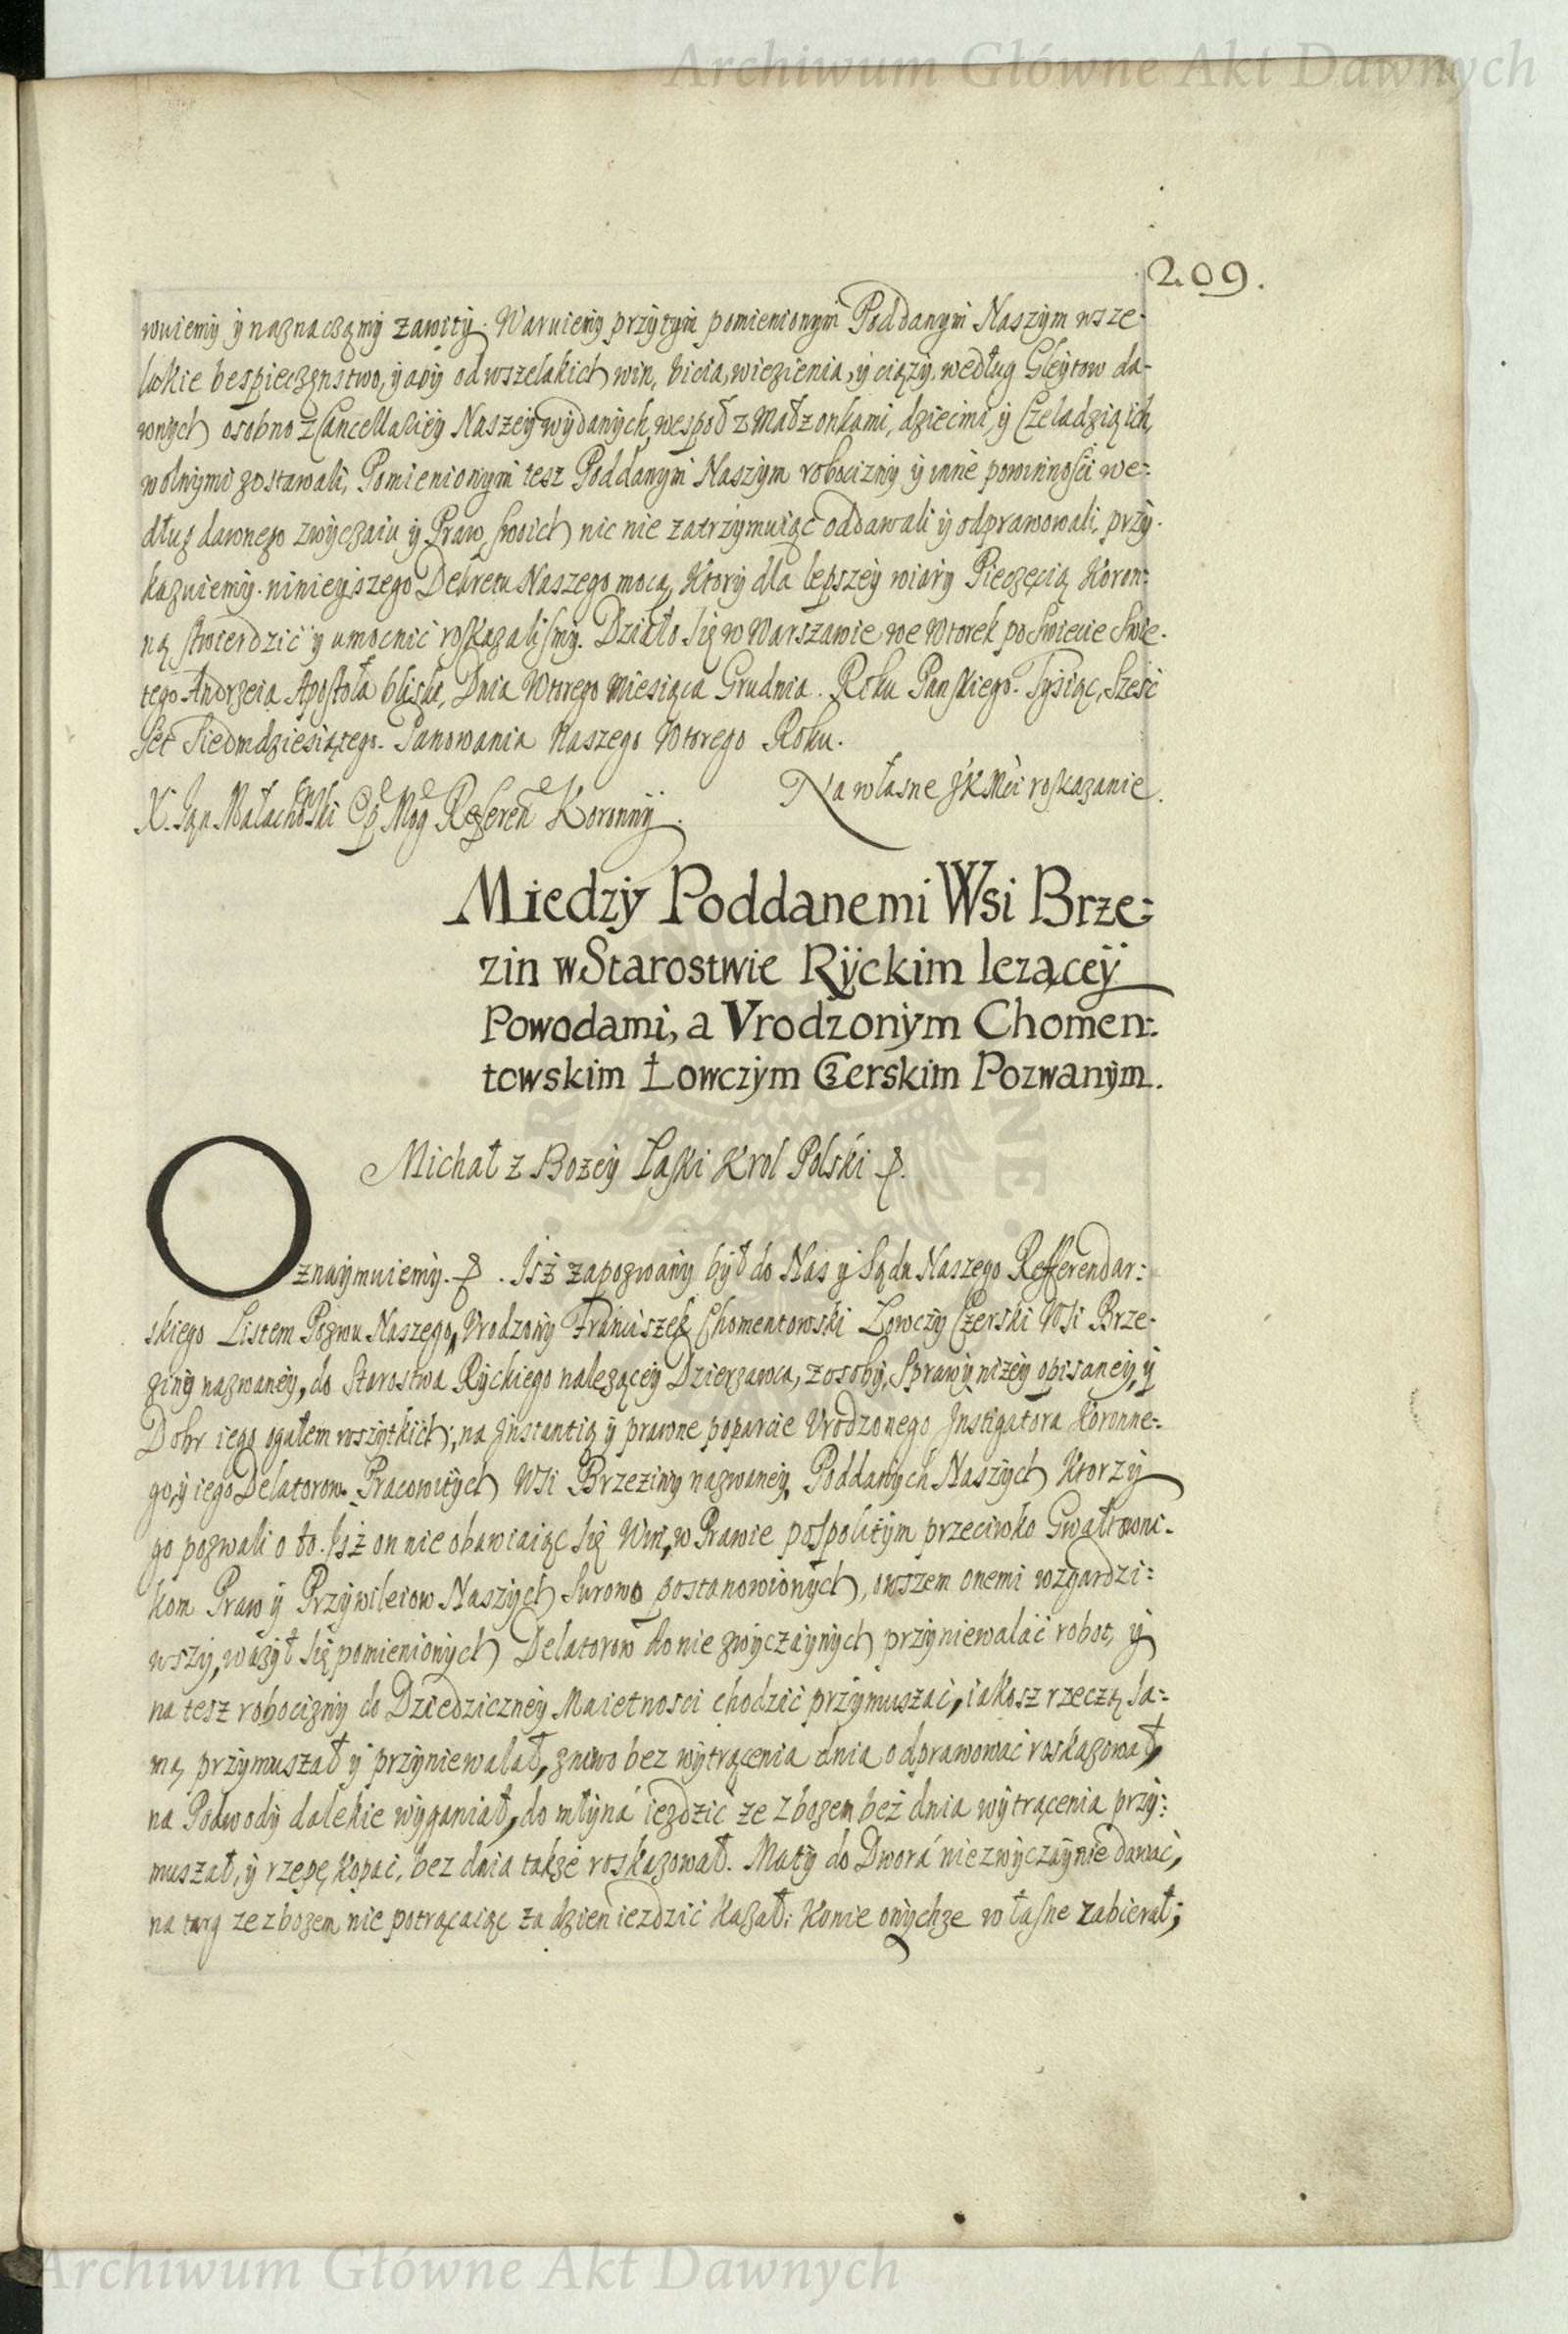 Archiwum Główne Akt Dawnych
209.
wuiemy y naznaczamy zawity. Waruiemy przytym pomienionym Poddanym Naszym wsze-
lakie bespieczenstwo, y aby od wszelakich win, bicia, wiezienia, y ciązy, według Gleytow da-
wnych osobno z Cancellariey Naszey wydanych, wespoł z Małzonkami, dziecmi, y Czeladzią ich,
wolnymi zostawali, Pomienionym tesz Poddanym Naszym robocizny y inne powinnosci we-
dług dawnego zwyczaiu y Praw swoich nic nie zatrzymuiąc oddawali y odprawowali, przy-
kazuiemy. ninieyszego Dekretu Naszego mocą, Ktory dla lepszey wiary Pieczęcią Koron-
ną stwierdzic y umocnic roskazalismy. Działo się w Warszawie we Wtorek po Swiecie Swie-
tego Andrzeia Apostoła blisko, Dnia Wtorego Miesiąca Grudnia. Roku Panskiego. Tysiąc, Szesc
set Siedmdziesiątego. Panowania Naszego Wtorego Roku.
X. Jan Małachowski Mog Referen Koronny.
Na własne JKMci roskazanie.
Miedzy Poddanemi Wsi Brze-
zin w Starostwie Ryckim lezącey
Powodami, a Vrodzonym Chomen-
towskim Łowczym Czerskim Pozwanym.
Michał z Bozey Łaski Krol Polski
Oznaymuiemy. Isz zapozwany był do Nas y Sądu Naszego Refferendar-
skiego Listem Pozwu Naszego, Vrodzony Franciszek Chomentowski Łowczy Czerski Wsi Brze-
ziny nazwaney, do Starostwa Ryckiego nalezącey Dzierzawca, z osoby, Sprawy nizey opisaney, y
Dobr iego ogułem wszytkich; na Instantią y prawne poparcie Vrodzonego Instigatora Koronne-
go, y iego Delatorow Pracowitych Wsi Brzeziny nazwaney, Poddanych Naszych Ktorzy
go pozwali o to. Isz on nie obawiaiąc się Win, w Prawie pospolitym przeciwko Gwałtowni-
kom Praw y Przywileiow Naszych surowo postanowionych, owszem onemi wzgardzi-
wszy, wazył się pomienionych Delatorow do nie zwyczaynych przyniewalać robot, y
na tesz robocizny do Dziedziczney Maietnosci chodzić przymuszać, iakosz rzeczą sa-
mą przymuszał y przyniewalał, zniwo bez wytrącenia dnia odprawować roskazował,
na Podwody dalekie wyganiał, do młyna iezdzić ze zbozem bez dnia wytrącenia przy-
muszał, y rzepę kopać, bez dnia takze roskazował. Maty do Dwora niezwyczaynie dawać,
na targ ze zbozem nie potrącaiąc za dzien iezdzić kazał: Konie onychze własne zabierał;
Archiwum Główne Akt Dawnych